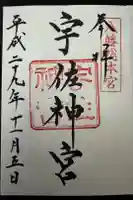 奉拝
宇佐神宮
平成二九年十一月五日